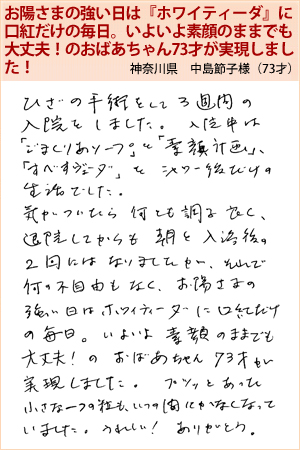 お陽さまの強い日は『ホワイティーダ』に
口紅だけの毎日。いよいよ素顔のままでも
大丈夫！のおばあちゃん73才が実現しまし
た！
神奈川県　中島節子様（73才）
ひざの手術をして3週間の
入院をしました。入院中は
「ごまじりあソープ」と「素顔計画」、
「すべすヴェーダ」を シャワー後だけの
生活でした。
気がついたら 何とも調子良く、
退院してからも 朝と入浴後の
2回にはなりましたが、それで
何の不自由もなく、お陽さまの
強い日はホワイティーダに口紅だけ
の毎日。いよいよ 素顔のままでも
大丈夫！の おばあちゃん 73才が
実現しました。プツッとあった
小さな一つの粒も、いつの間にかなくなって
いました。うれしい！ ありがとう。